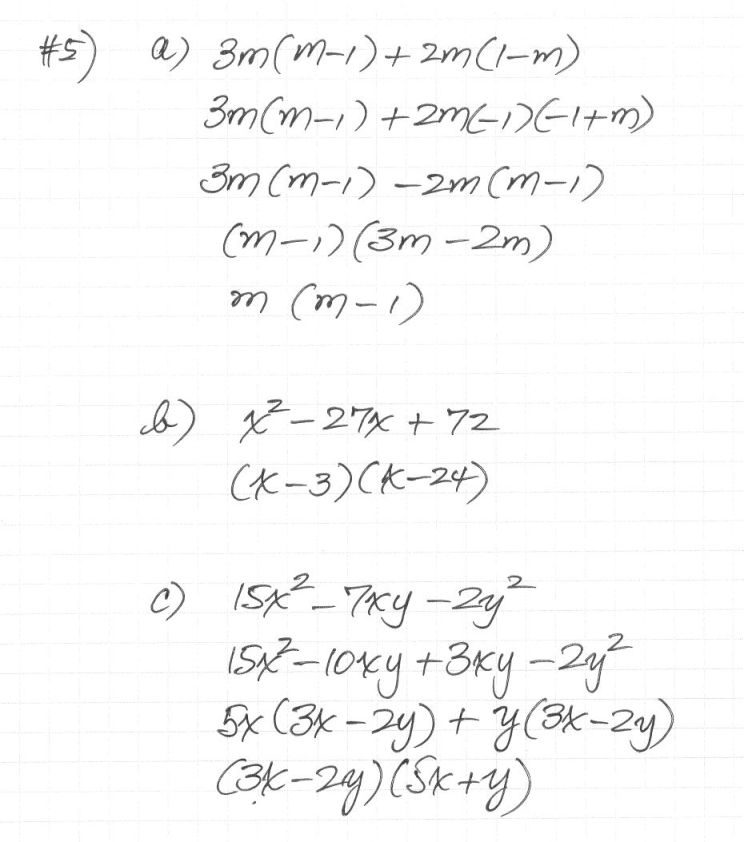 #5) a) 3m(m-1)+2m(1-m)
3m(m-1)+2m(-1)(-1+m)
3m(m-1)-2m(m-1)
(m-1)(3m-2m)
m(m-1)
b) x²-27x+72
(x-3)(x-24)
c) 15x²-7xy-2y²
15x²-10xy+3xy-2y²
5x(3x-2y)+y(3x-2y)
(3x-2y)(5x+y)